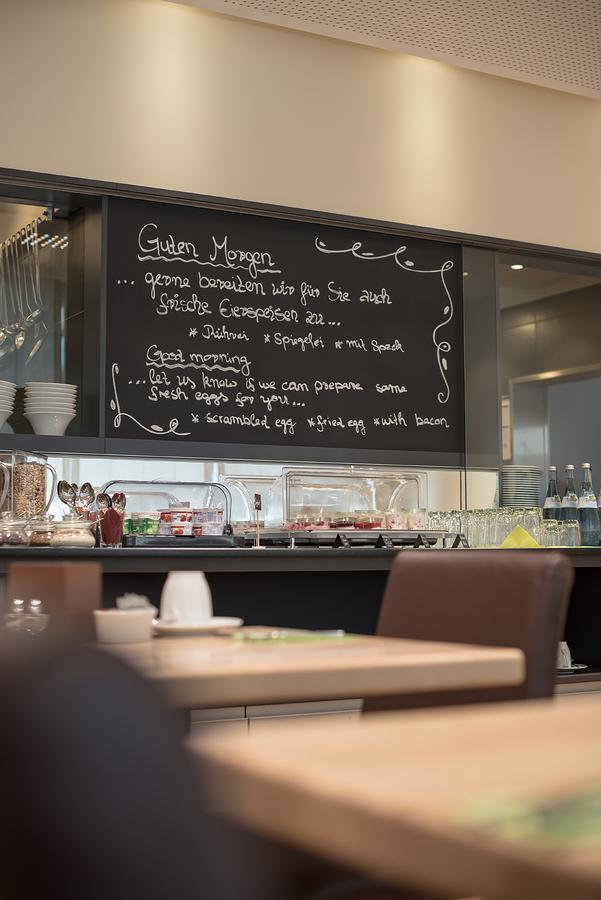 Guten Morgen
... gerne bereiten wir für Sie auch
frische Eierspeisen zu...
* Rührei * Spiegelei * mit Speck
Good morning
...let us know is we can prepare some
fresh eggs for you...
* scrambled egg * fried egg * with bacon